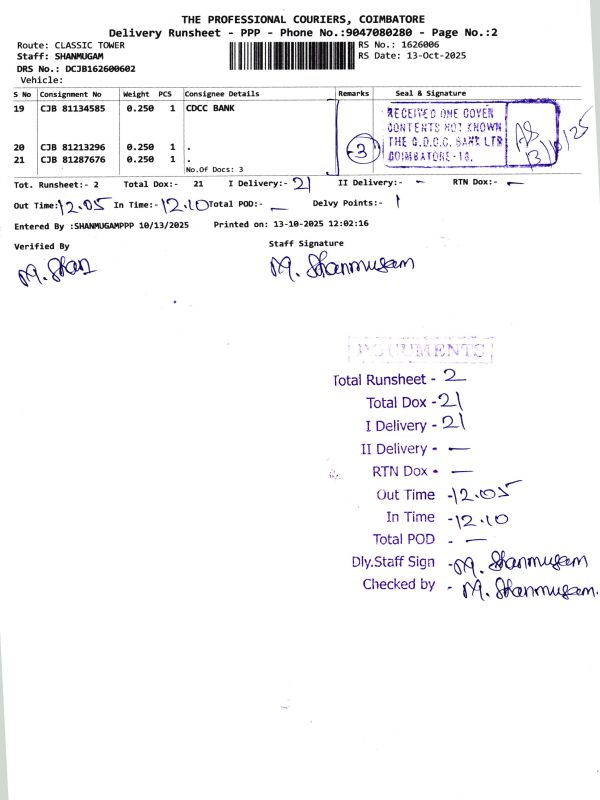 THE PROFESSIONAL COURIERS, COIMBATORE
Delivery Runsheet - PPP - Phone No.:9047080280 - Page No.:2
Route: CLASSIC TOWER
RS No.: 1626006
Staff: SHANMUGAM
RS Date: 13-Oct-2025
DRS No.: DCJB162600602
Vehicle:
S No Consignment No Weight PCS Consignee Details Remarks Seal & Signature
19 CJB 81134585 0.250 1 CDCC BANK
RECEIVED ONE COVER
CONTENTS NOT KNOWN
THE C.D.C.C. BANK LTD
COIMBATORE-18.
13/10/25
20 CJB 81213296 0.250 1 .
-3
21 CJB 81287676 0.250 1 .
No.Of Docs: 3
Tot. Runsheet:- 2 Total Dox:- 21 I Delivery:- 21 II Delivery:- - RTN Dox:- -
Out Time:12.05 In Time:-12.10 Total POD:- - Delvy Points:- 1
Entered By :SHANMUGAMPPP 10/13/2025 Printed on: 13-10-2025 12:02:16
Verified By
Staff Signature
M. Shan
M. Shanmugam
DOCUMENTS
Total Runsheet - 2
Total Dox - 21
I Delivery - 21
II Delivery - —
RTN Dox - —
Out Time - 12.05
In Time - 12.10
Total POD - —
Dly.Staff Sign - M. Shanmugam
Checked by - M. Shanmugam.